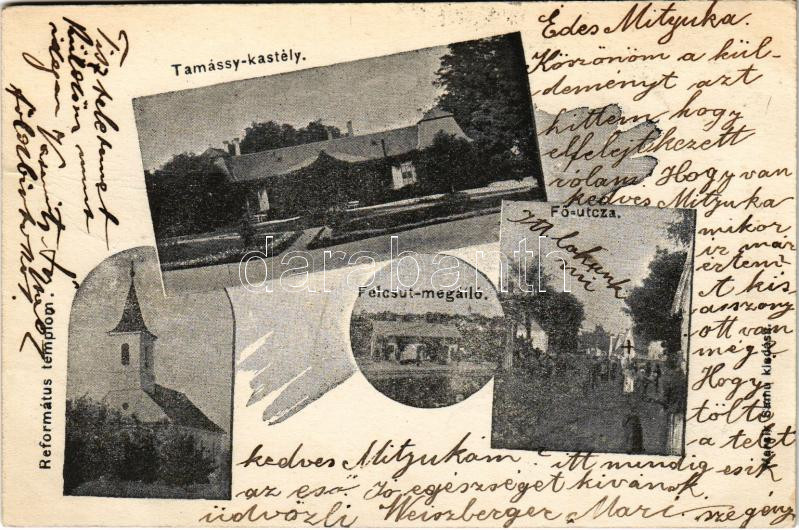 Tamássy-kastély.
Református templom.
Felcsut-megálló.
Fő-utcza.
Samu kiadása.
darabanth
Itt lakunk
mi
Édes Mityuka.
Köszönöm a kül-
deményt azt
hittem hogy
elfelejtkezett
rólam. Hogy van
kedves Mityuka
mikor
ir már
A kis
asszony
ott van
még.
Hogy
tölte
a telet
kedves Mityukám itt mindig esik
az eső Jó egészséget kivánok
üdvözli Weiszberger Mari szegény
Tisztelemet
küldöm